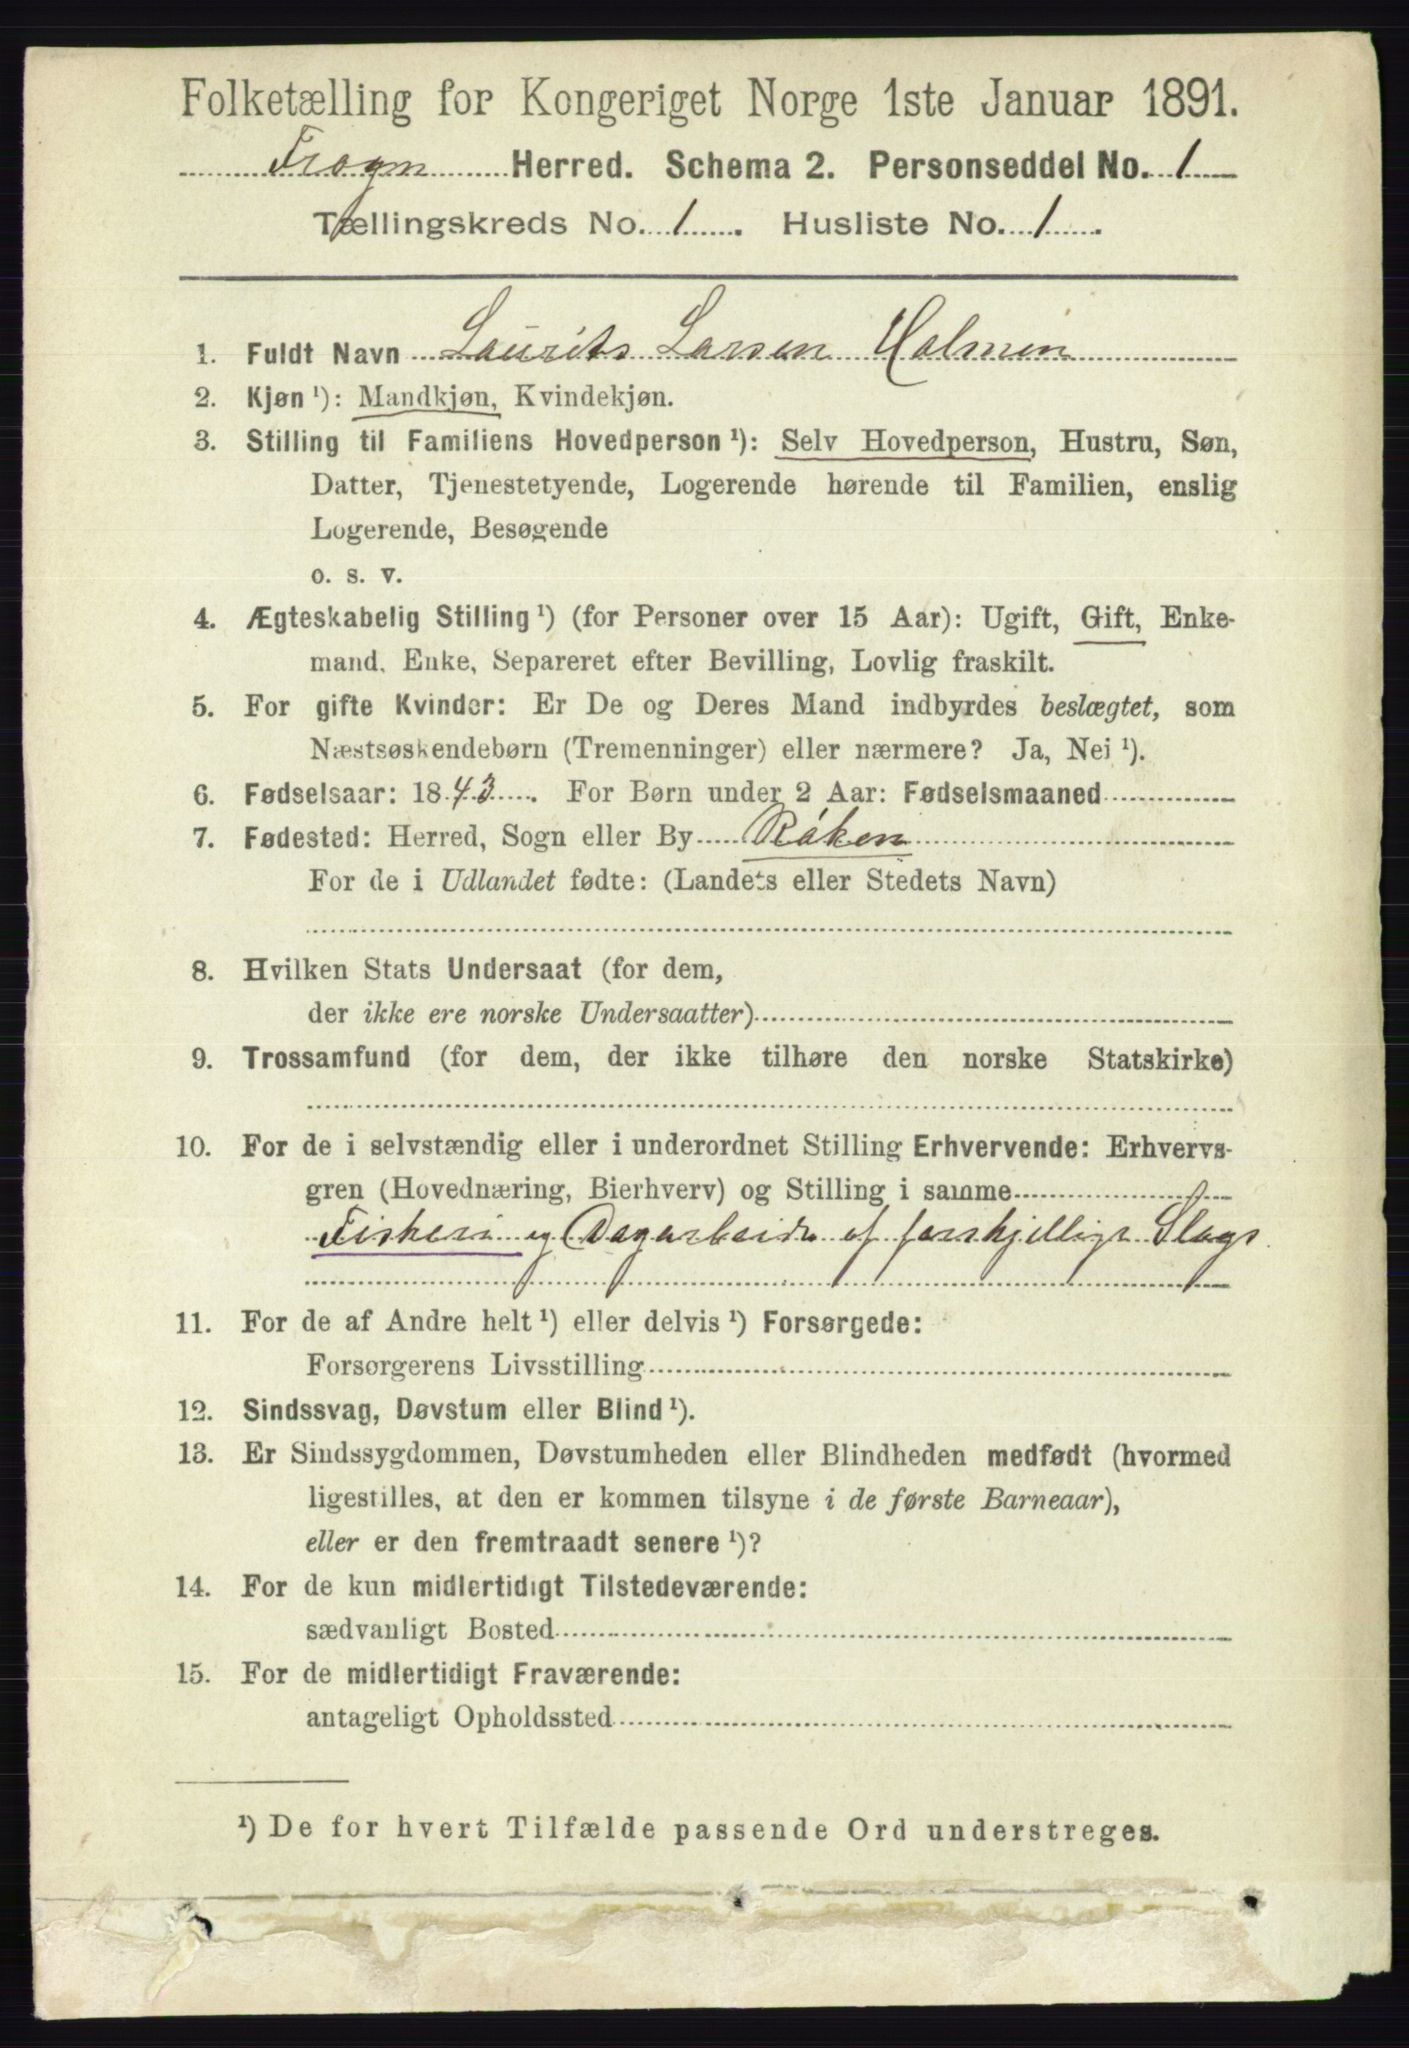 Folketælling for Kongeriget Norge 1ste Januar 1891.
Frogn Herred. Schema 2. Personseddel No. 1
Tællingskreds No. 1. Husliste No. 1.
1. Fuldt Navn Laurits Larsen Holmen
2. Kjøn ¹): Mandkjøn, Kvindekjøn.
3. Stilling til Familiens Hovedperson ¹): Selv Hovedperson, Hustru, Søn,
Datter, Tjenestetyende, Logerende hørende til Familien, enslig
Logerende, Besøgende
o. s. v.
4. Ægteskabelig Stilling ¹) (for Personer over 15 Aar): Ugift, Gift, Enke-
mand, Enke, Separeret efter Bevilling, Lovlig fraskilt.
5. For gifte Kvinder: Er De og Deres Mand indbyrdes beslægtet, som
Næstsøskendebørn (Tremenninger) eller nærmere? Ja, Nei ¹).
6. Fødselsaar: 1843. For Børn under 2 Aar: Fødselsmaaned
7. Fødested: Herred, Sogn eller By Røken
For de i Udlandet fødte: (Landets eller Stedets Navn)
8. Hvilken Stats Undersaat (for dem,
der ikke ere norske Undersaatter)
9. Trossamfund (for dem, der ikke tilhøre den norske Statskirke)
10. For de i selvstændig eller i underordnet Stilling Erhvervende: Erhvervs-
gren (Hovednæring, Bierhverv) og Stilling i samme
Fiskeri og Dagarbeide af forskjellige Slags
11. For de af Andre helt ¹) eller delvis ¹) Forsørgede:
Forsørgerens Livsstilling
12. Sindssvag, Døvstum eller Blind ¹).
13. Er Sindssygdommen, Døvstumheden eller Blindheden medfødt (hvormed
ligestilles, at den er kommen tilsyne i de første Barneaar),
eller er den fremtraadt senere ¹)?
14. For de kun midlertidigt Tilstedeværende:
sædvanligt Bosted
15. For de midlertidigt Fraværende:
antageligt Opholdssted
¹) De for hvert Tilfælde passende Ord understreges.